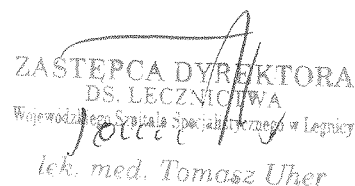 ZASTĘPCA DYREKTORA
DS. LECZNICTWA
Wojewódzkiego Szpitala Specjalistycznego w Legnicy
lek. med. Tomasz Uher